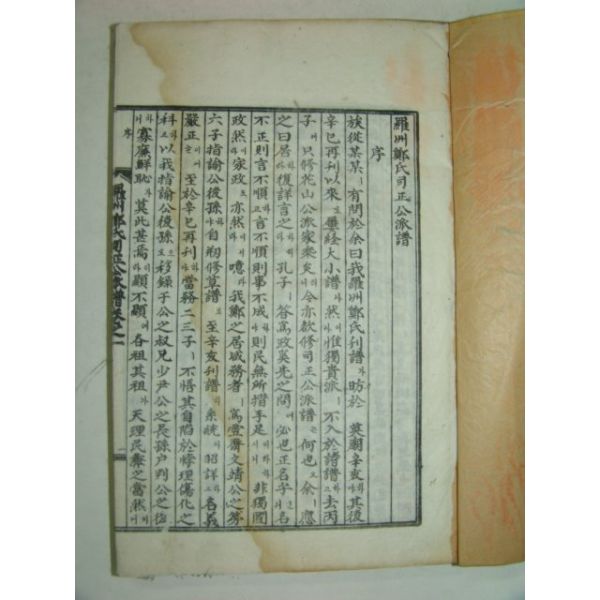 羅州鄭氏司正公派譜
序
族從某某ㅣ有問於余曰我羅州鄭氏刊譜ㅣ昉於 英廟辛亥하야其後
辛巳再刊以來로屢經大小譜나然이나惟獨貴派ㅣ不入於諸譜하고去丙
子에只修花山公派家乘矣러니今亦欲修司正公派譜는何也오余ㅣ應
之曰居하라復詳言之하리라孔子ㅣ答爲政奚先之問에必也正名乎인저名
不正則言不順하고言不順則事不成하야則民無所措手足이라하시니非獨國
政然이라家政도亦然이라噫라我鄭之居城務者ㅣ爲雪齋文靖公之第
六子指諭公後孫하야自初修草譜로至辛亥刊譜히系統이昭詳하고名義
嚴正이러니至於辛巳再刊하야當務二三子ㅣ不悟其自陷於悖理傷化之
科하고以我指諭公後孫으로移錄于公之叔兄少尹公之長孫戶判公之後
하니寡廉鮮恥ㅣ莫此甚焉이라顯不顯에各祖其祖는天理民彝之當然이어
序
羅州鄭氏司正公派譜卷之一
一